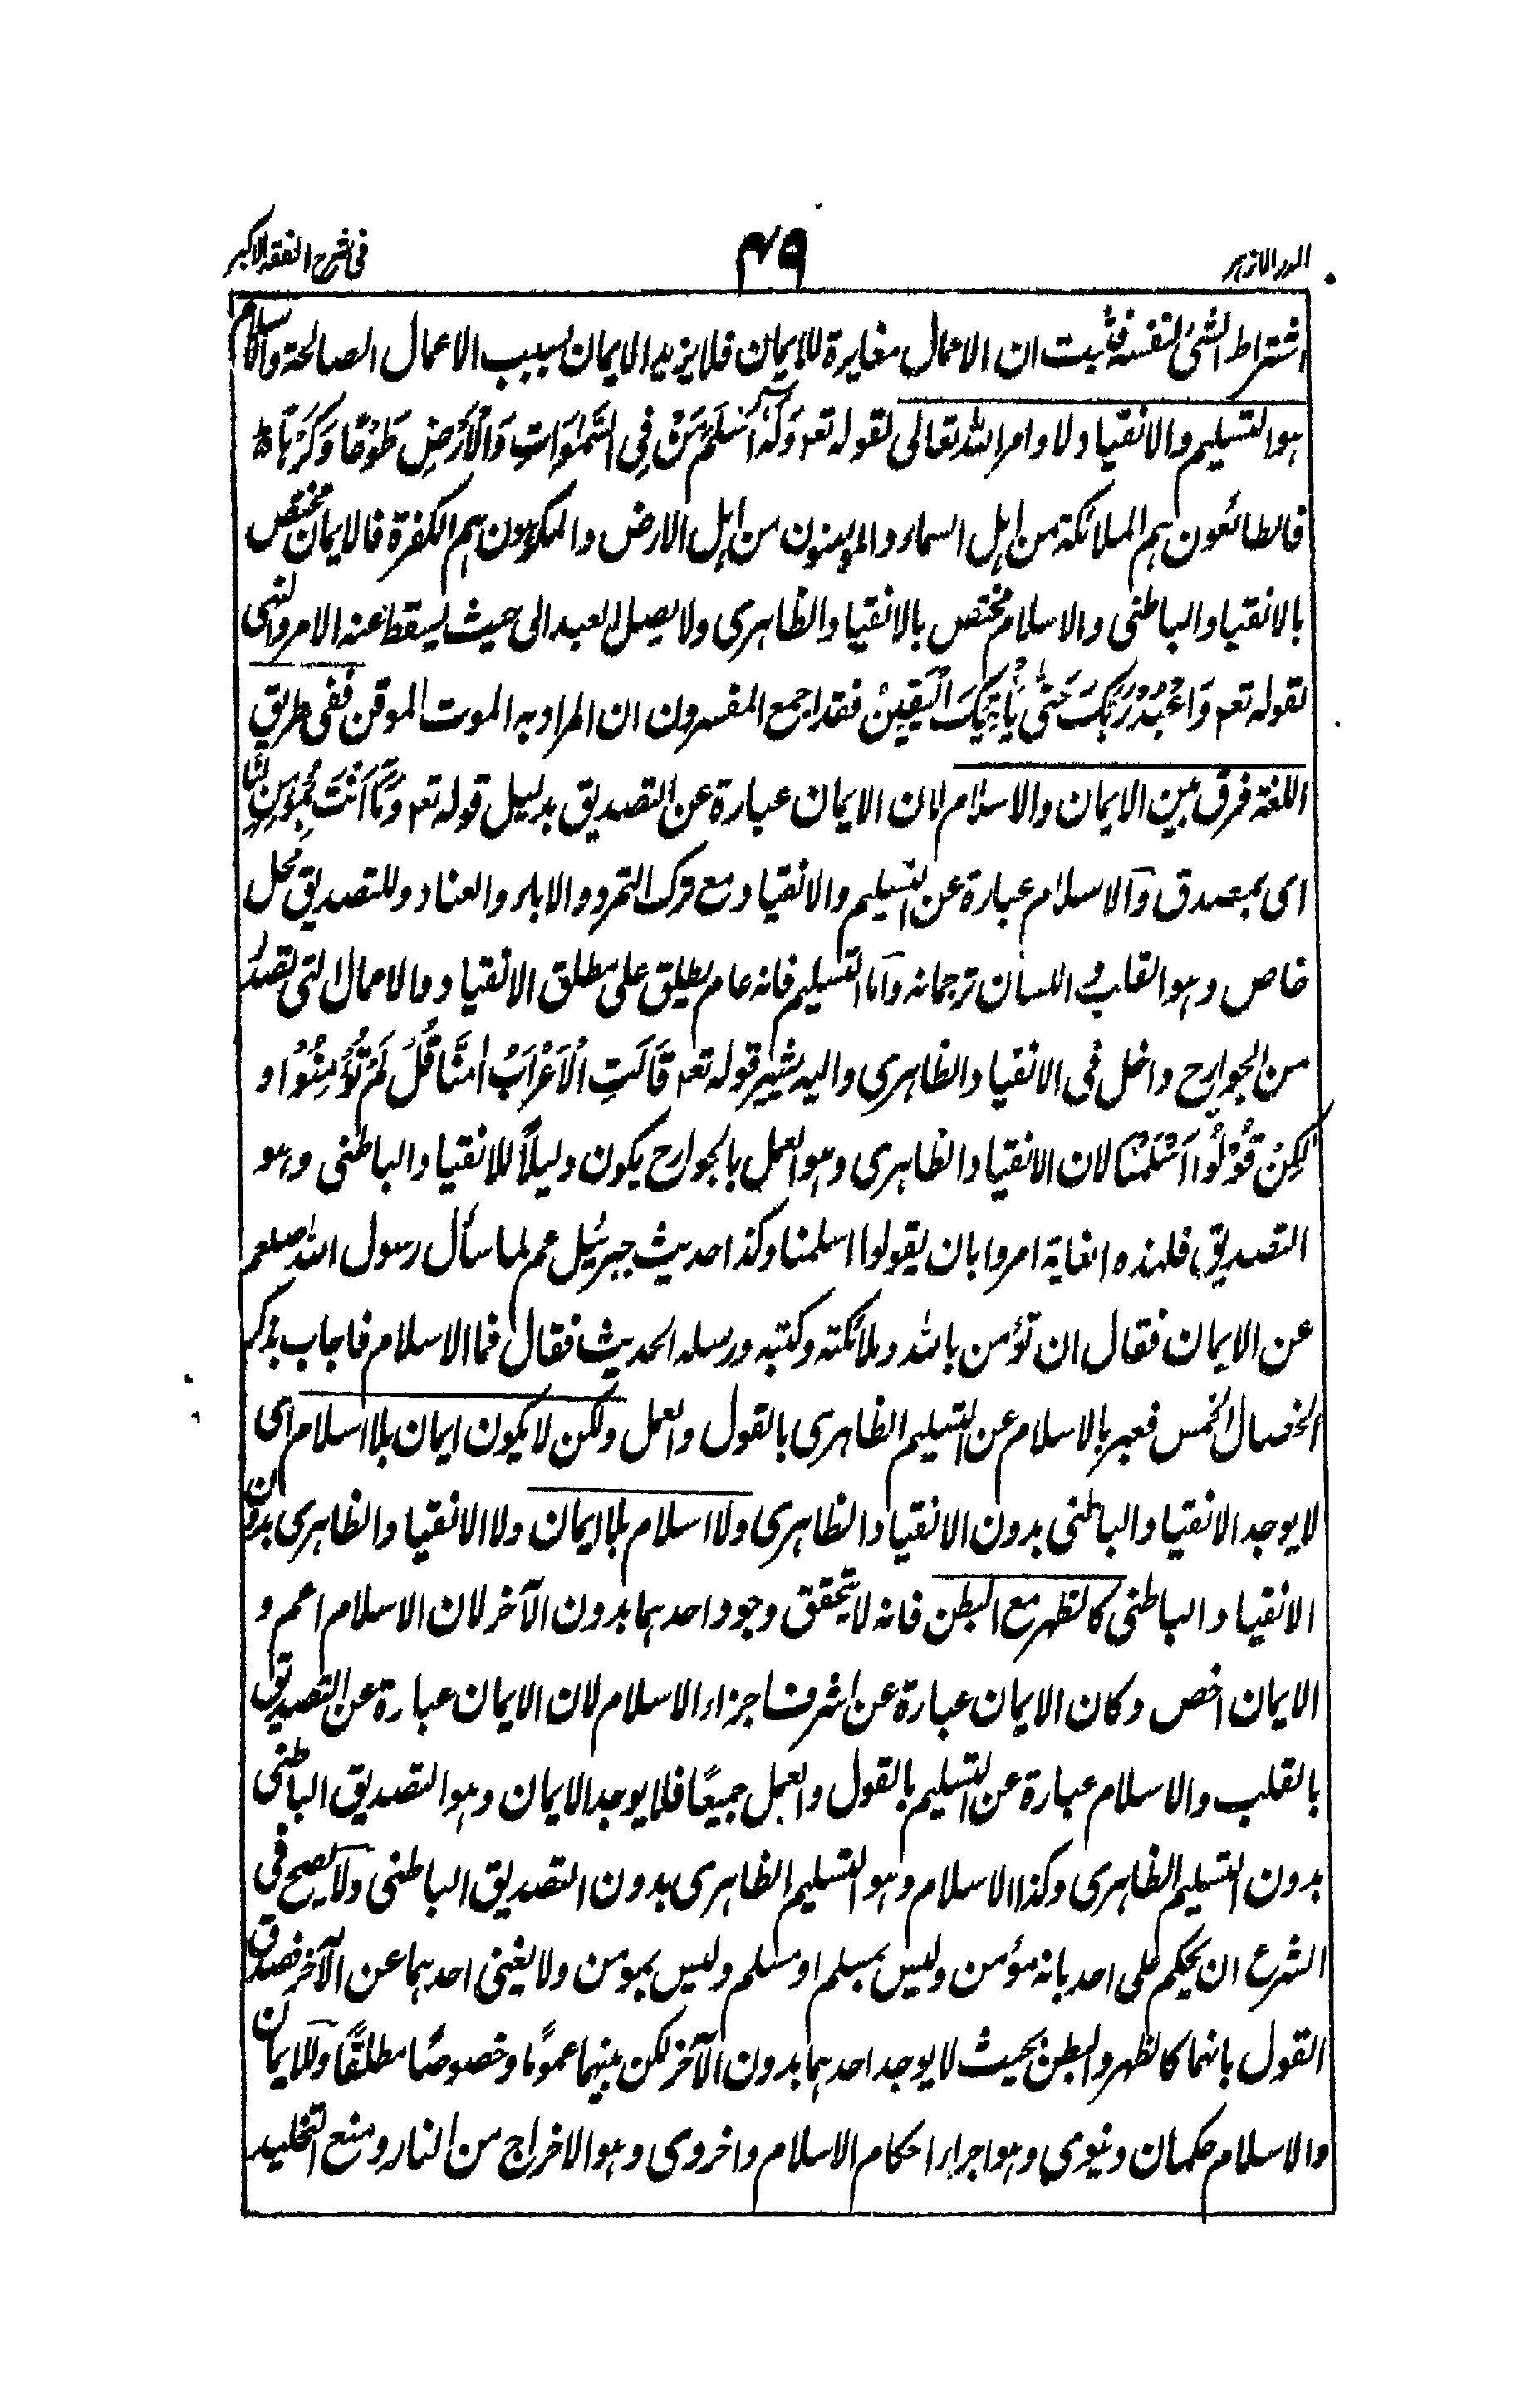 الدر الازہر
۴۹
فی شرح الفقہ الاکبر
اشتراط الشئ لنفسہ فثبت ان الاعمال مغایرة للایمان فلا یزید الایمان بسبب الاعمال الصالحة والاسلام
ہو التسلیم والانقیاد لاوامر اللہ تعالی لقولہ تعہ وَلَہٗ اَسْلَمَ مَنْ فِی السَّمٰوَاتِ وَالْاَرْضِ طَوْعًا وَکَرْہًا ط
فالطائعون ہم الملائکة من اہل السماء والمؤمنون من اہل الارض والمکرہون ہم الکفرة فالایمان مختص
بالانقیاد الباطنی والاسلام مختص بالانقیاد الظاہری ولا یصل العبد الی حیث یسقط عنہ الامر والنہی
لقولہ تعہ وَاعْبُدْ رَبَّکَ حَتّٰی یَأْتِیَکَ الْیَقِیْنُ فقد اجمع المفسرون ان المراد بہ الموت الموقن ففی طریق
اللغة فرق بین الایمان والاسلام لان الایمان عبارة عن التصدیق بدلیل قولہ تعہ وَمَا اَنْتَ بِمُؤْمِنٍ لَّنَا
ای بمصدق والاسلام عبارة عن التسلیم والانقیاد مع ترک التمرد والاباء والعناد وللتصدیق محل
خاص وہو القلب واللسان ترجمانہ واما التسلیم فانہ عام یطلق علی مطلق الانقیاد والاعمال التی تصدر
من الجوارح داخل فی الانقیاد الظاہری والیہ یشیر قولہ تعہ قَالَتِ الْاَعْرَابُ اٰمَنَّا قُلْ لَمْ تُؤْمِنُوْا و
لٰکِنْ قُوْلُوْا اَسْلَمْنَا لان الانقیاد الظاہری وہو العمل بالجوارح یکون دلیلاً للانقیاد الباطنی وہو
التصدیق فلہذہ الغایة امروا بان یقولوا اسلمنا وکذا حدیث جبرئیل عم لما سأل رسول اللہ صلعم
عن الایمان فقال ان تؤمن باللہ وملائکتہ وکتبہ ورسلہ الحدیث فقال فما الاسلام فاجاب بذکر
الخصال الخمس فعبر بالاسلام عن التسلیم الظاہری بالقول والعمل ولکن لا یکون ایمان بلا اسلام ای
لا یوجد الانقیاد الباطنی بدون الانقیاد الظاہری ولا اسلام بلا ایمان ولا الانقیاد الظاہری بدون
الانقیاد الباطنی کالظہر مع البطن فانہ لا یتحقق وجود احدہما بدون الآخر لان الاسلام اعم و
الایمان اخص وکان الایمان عبارة عن اشرف اجزاء الاسلام لان الایمان عبارة عن التصدیق
بالقلب والاسلام عبارة عن التسلیم بالقول والعمل جمیعًا فلا یوجد الایمان وہو التصدیق الباطنی
بدون التسلیم الظاہری وکذا الاسلام وہو التسلیم الظاہری بدون التصدیق الباطنی ولا یصح فی
الشرع ان یحکم علی احد بانہ مؤمن ولیس بمسلم او مسلم ولیس بمؤمن ولا یغنی احدہما عن الآخر فصدق
القول بانہما کالظہر والبطن بحیث لا یوجد احدہما بدون الآخر لکن بینہما عمومًا وخصوصًا مطلقًا وللایمان
والاسلام حکمان دنیوی وہو اجراء احکام الاسلام واخروی وہو الاخراج من النار ومنع التخلید